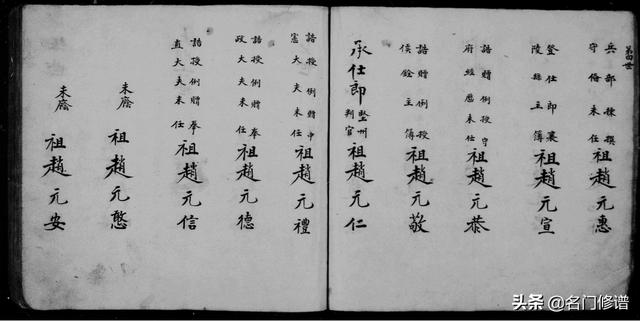 第四世
兵部
守俻未任
祖趙元惠
登仕郎襄
陵縣主簿
祖趙元宣
誥贈例授守
府經歷未任
祖趙元恭
誥贈例授
侯銓主簿
祖趙元敬
承仕郎
州
判官
祖趙元仁
誥授例贈中
憲大夫未任
祖趙元禮
誥授例贈奉
政大夫未任
祖趙元德
誥授例贈奉
直大夫未任
祖趙元信
未廢
祖趙元憨
未廢
祖趙元安
头条 @名门修谱